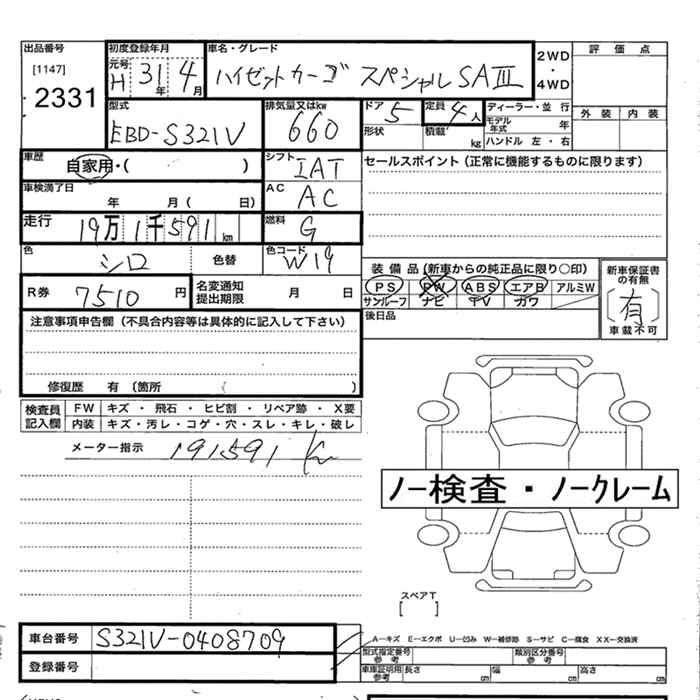 出品番号 初度登録年月 車名・グレード 2WD・4WD 評価点
[1147] 元号 H 31年 4月 ハイゼットカーゴ スペシャルSAⅢ
2331
型式 排気量又はkw ドア 5 定員 4人 ディーラー・並行 外装 内装
EBD-S321V 660 形状 積載 kg モデル年式 年
ハンドル 左・右
車歴 自家用・( ) シフト IAT セールスポイント(正常に機能するものに限ります)
車検満了日 年 月( 日) AC AC
走行 19万1千591km 燃料 G
色 シロ 色替 色コード W19 装備品(新車からの純正品に限り○印) 新車保証書の有無
R券 7510円 名変通知提出期限 月 日 PS PW ABS エアB アルミW [有]
サンルーフ ナビ TV カワ 車載不可
注意事項申告欄(不具合内容等は具体的に記入して下さい) 後日品
修復歴 有 〔箇所 ( )
検査員記入欄 FW キズ・飛石・ヒビ割・リペア跡・X要
内装 キズ・汚レ・コゲ・穴・スレ・キレ・破レ
メーター指示 191591 Km
ノー検査・ノークレーム
スペアT
[ ]
車台番号 S321V-0408709
A−キズ E−エクボ U−凹み W−補修跡 S−サビ C−腐食 XX−交換済
登録番号 型式指定番号 参考 類別区分番号 参考
車庫証明用参考 長さ cm 幅 cm 高さ cm